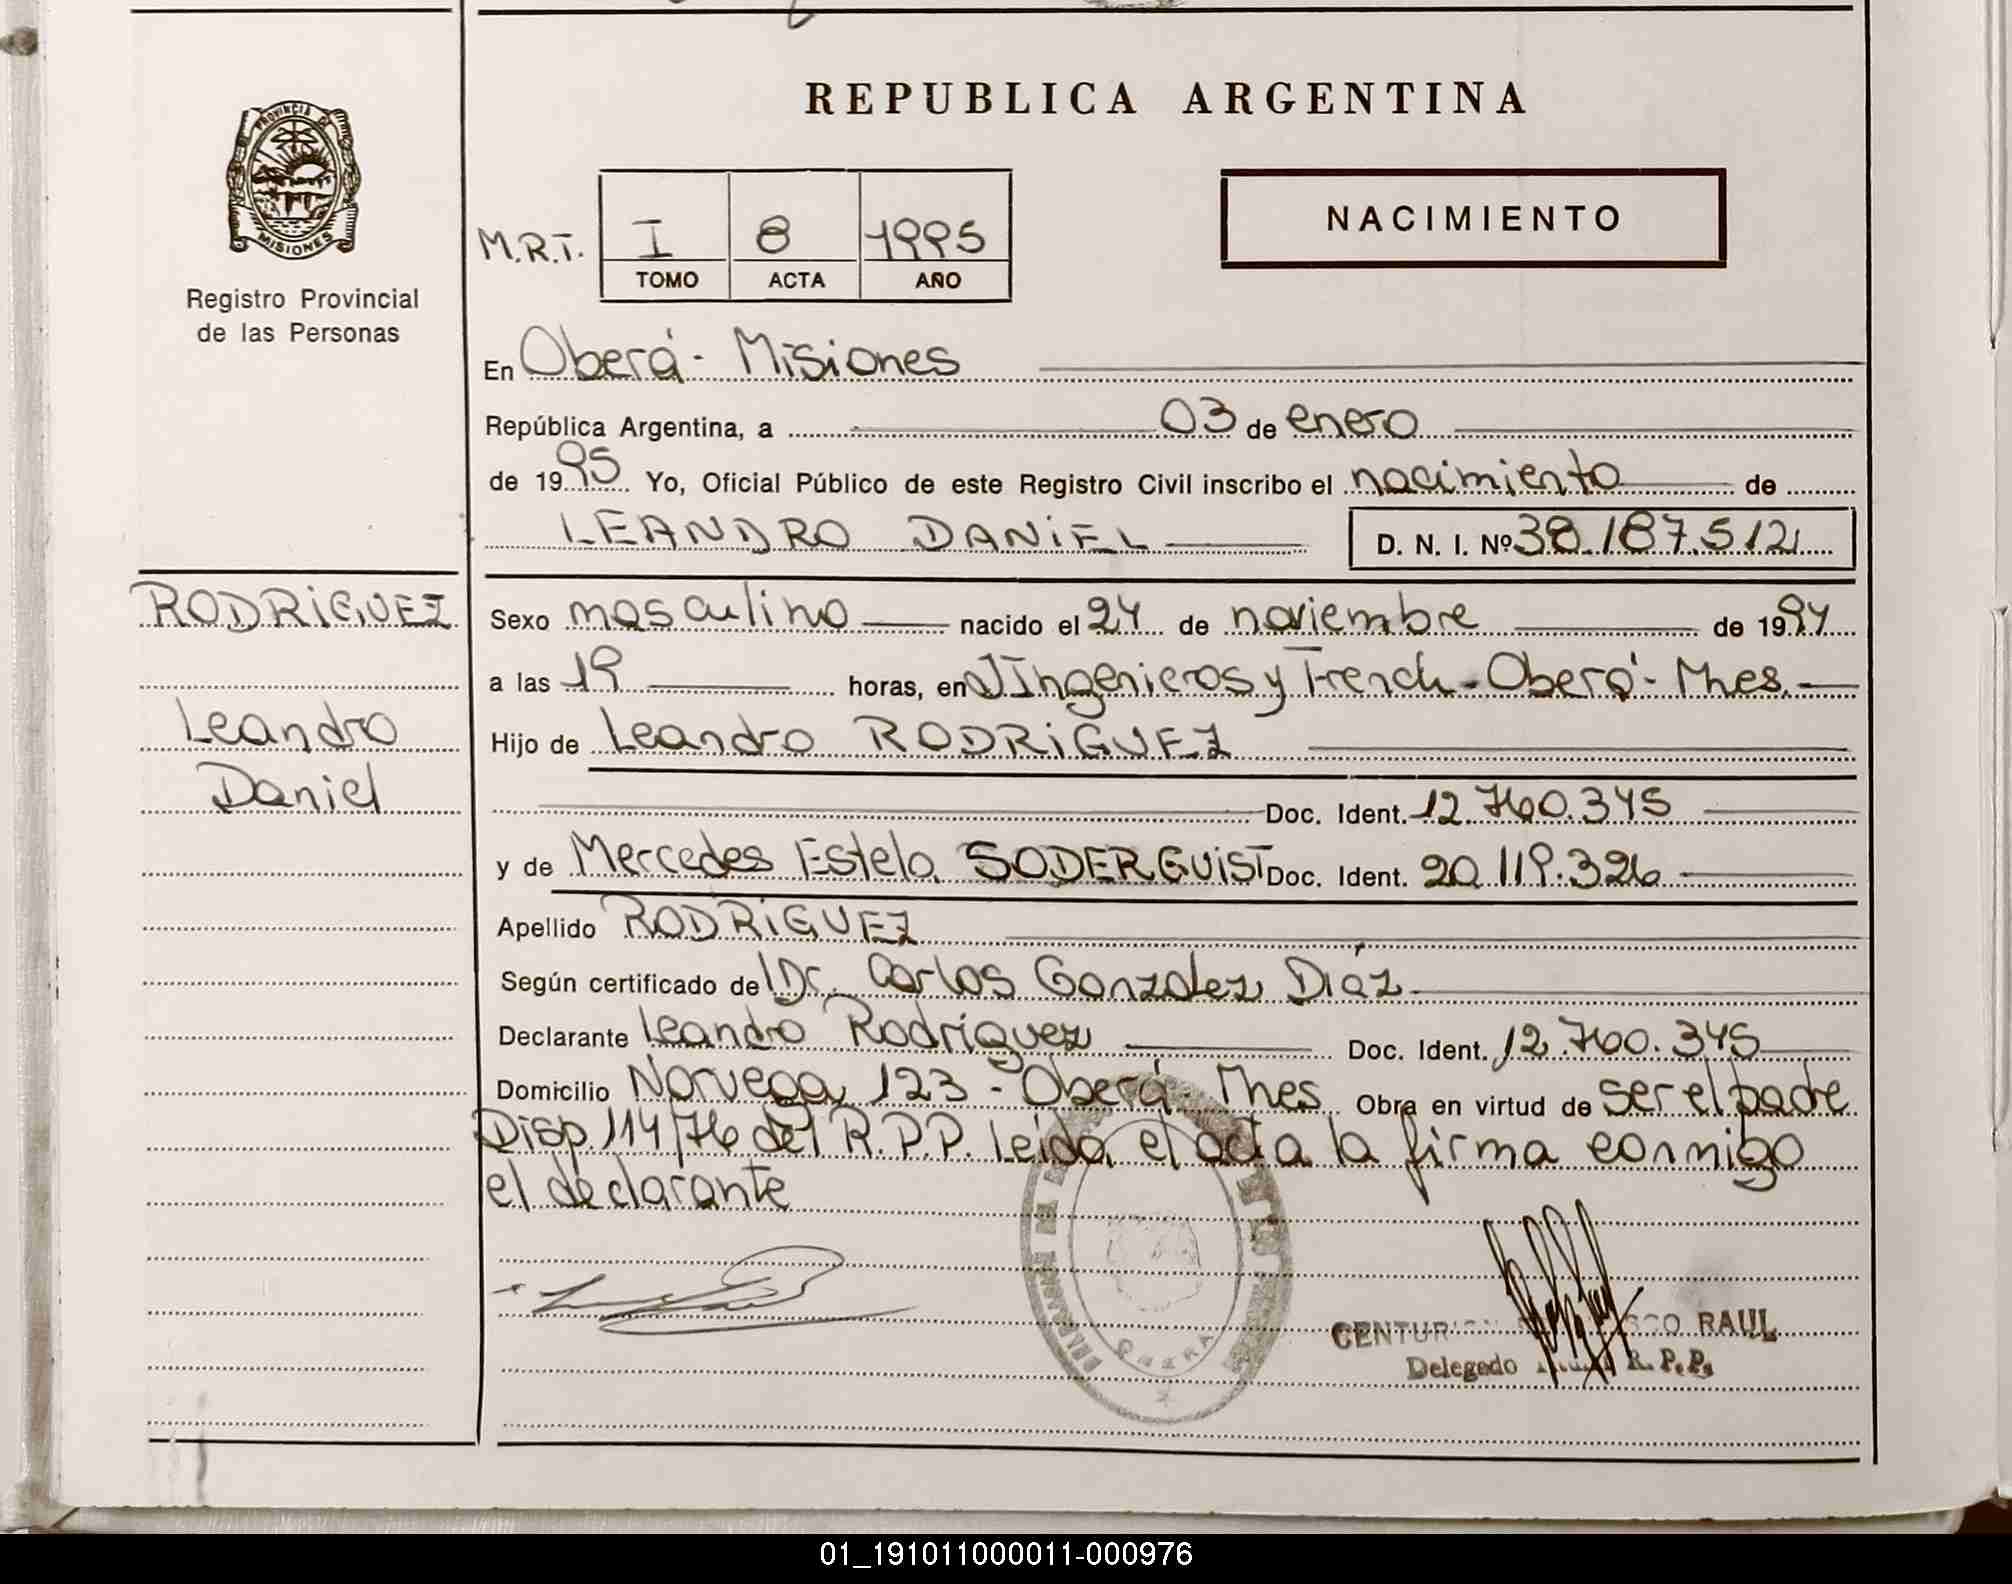 REPUBLICA ARGENTINA
PROVINCIA DE
MISIONES
Registro Provincial
de las Personas
NACIMIENTO
M.R.T. I 8 1995
TOMO ACTA AÑO
En Oberá - Misiones
República Argentina, a 03 de enero
de 1995 Yo, Oficial Público de este Registro Civil inscribo el nacimiento de
LEANDRO DANiEL D. N. I. Nº 38.187.512
RODRiGUEZ
Leandro
Daniel
Sexo masculino nacido el 24 de noviembre de 1994
a las 19 horas, en JIngenieros y French - Oberá - Mnes.
Hijo de Leandro RODRiGUEZ
Doc. Ident. 12.760.345
y de Mercedes Estela SODERGUiST Doc. Ident. 20.119.326
Apellido RODRiGUEZ
Según certificado de Dr. Carlos Gonzalez Díaz
Declarante Leandro Rodríguez Doc. Ident. 12.760.345
Domicilio Noruega 123 - Oberá - Mnes Obra en virtud de ser el padre
Disp. 114/76 del R.P.P. leída el acta la firma conmigo
el declarante
OBERA
RAUL
Delegado R. P. P.
01_191011000011-000976